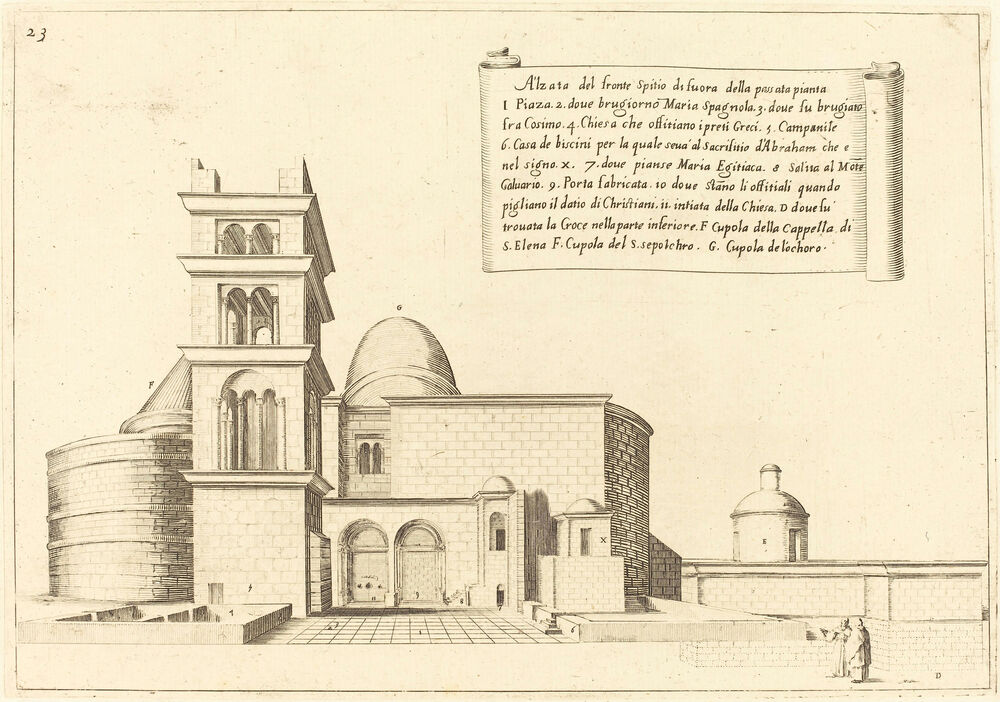 23
Alzata del fronte Spitio di fuora della passata pianta
1 Piaza. 2. doue brugiorno Maria Spagnola. 3. doue fu brugiato
fra Cosimo. 4. Chiesa che offitiano i preti Greci. 5. Campanile
6. Casa de biscini per la quale seua' al Sacrifitio d'Abraham che e
nel signo. x. 7. doue pianse Maria Egitiaca. 8 Salita al Mote
Galuario. 9. Porta fabricata. 10 doue stano li offitiali quando
pigliano il datio di Christiani. 11. intiata della Chiesa. D doue fu'
trouata la Croce nella parte inferiore. F Cupola della Cappella di
S. Elena F. Cupola del S. sepolchro. G. Cupola de lochoro.
G
F
E
X
5
4
11
9
7
1
2
6
D